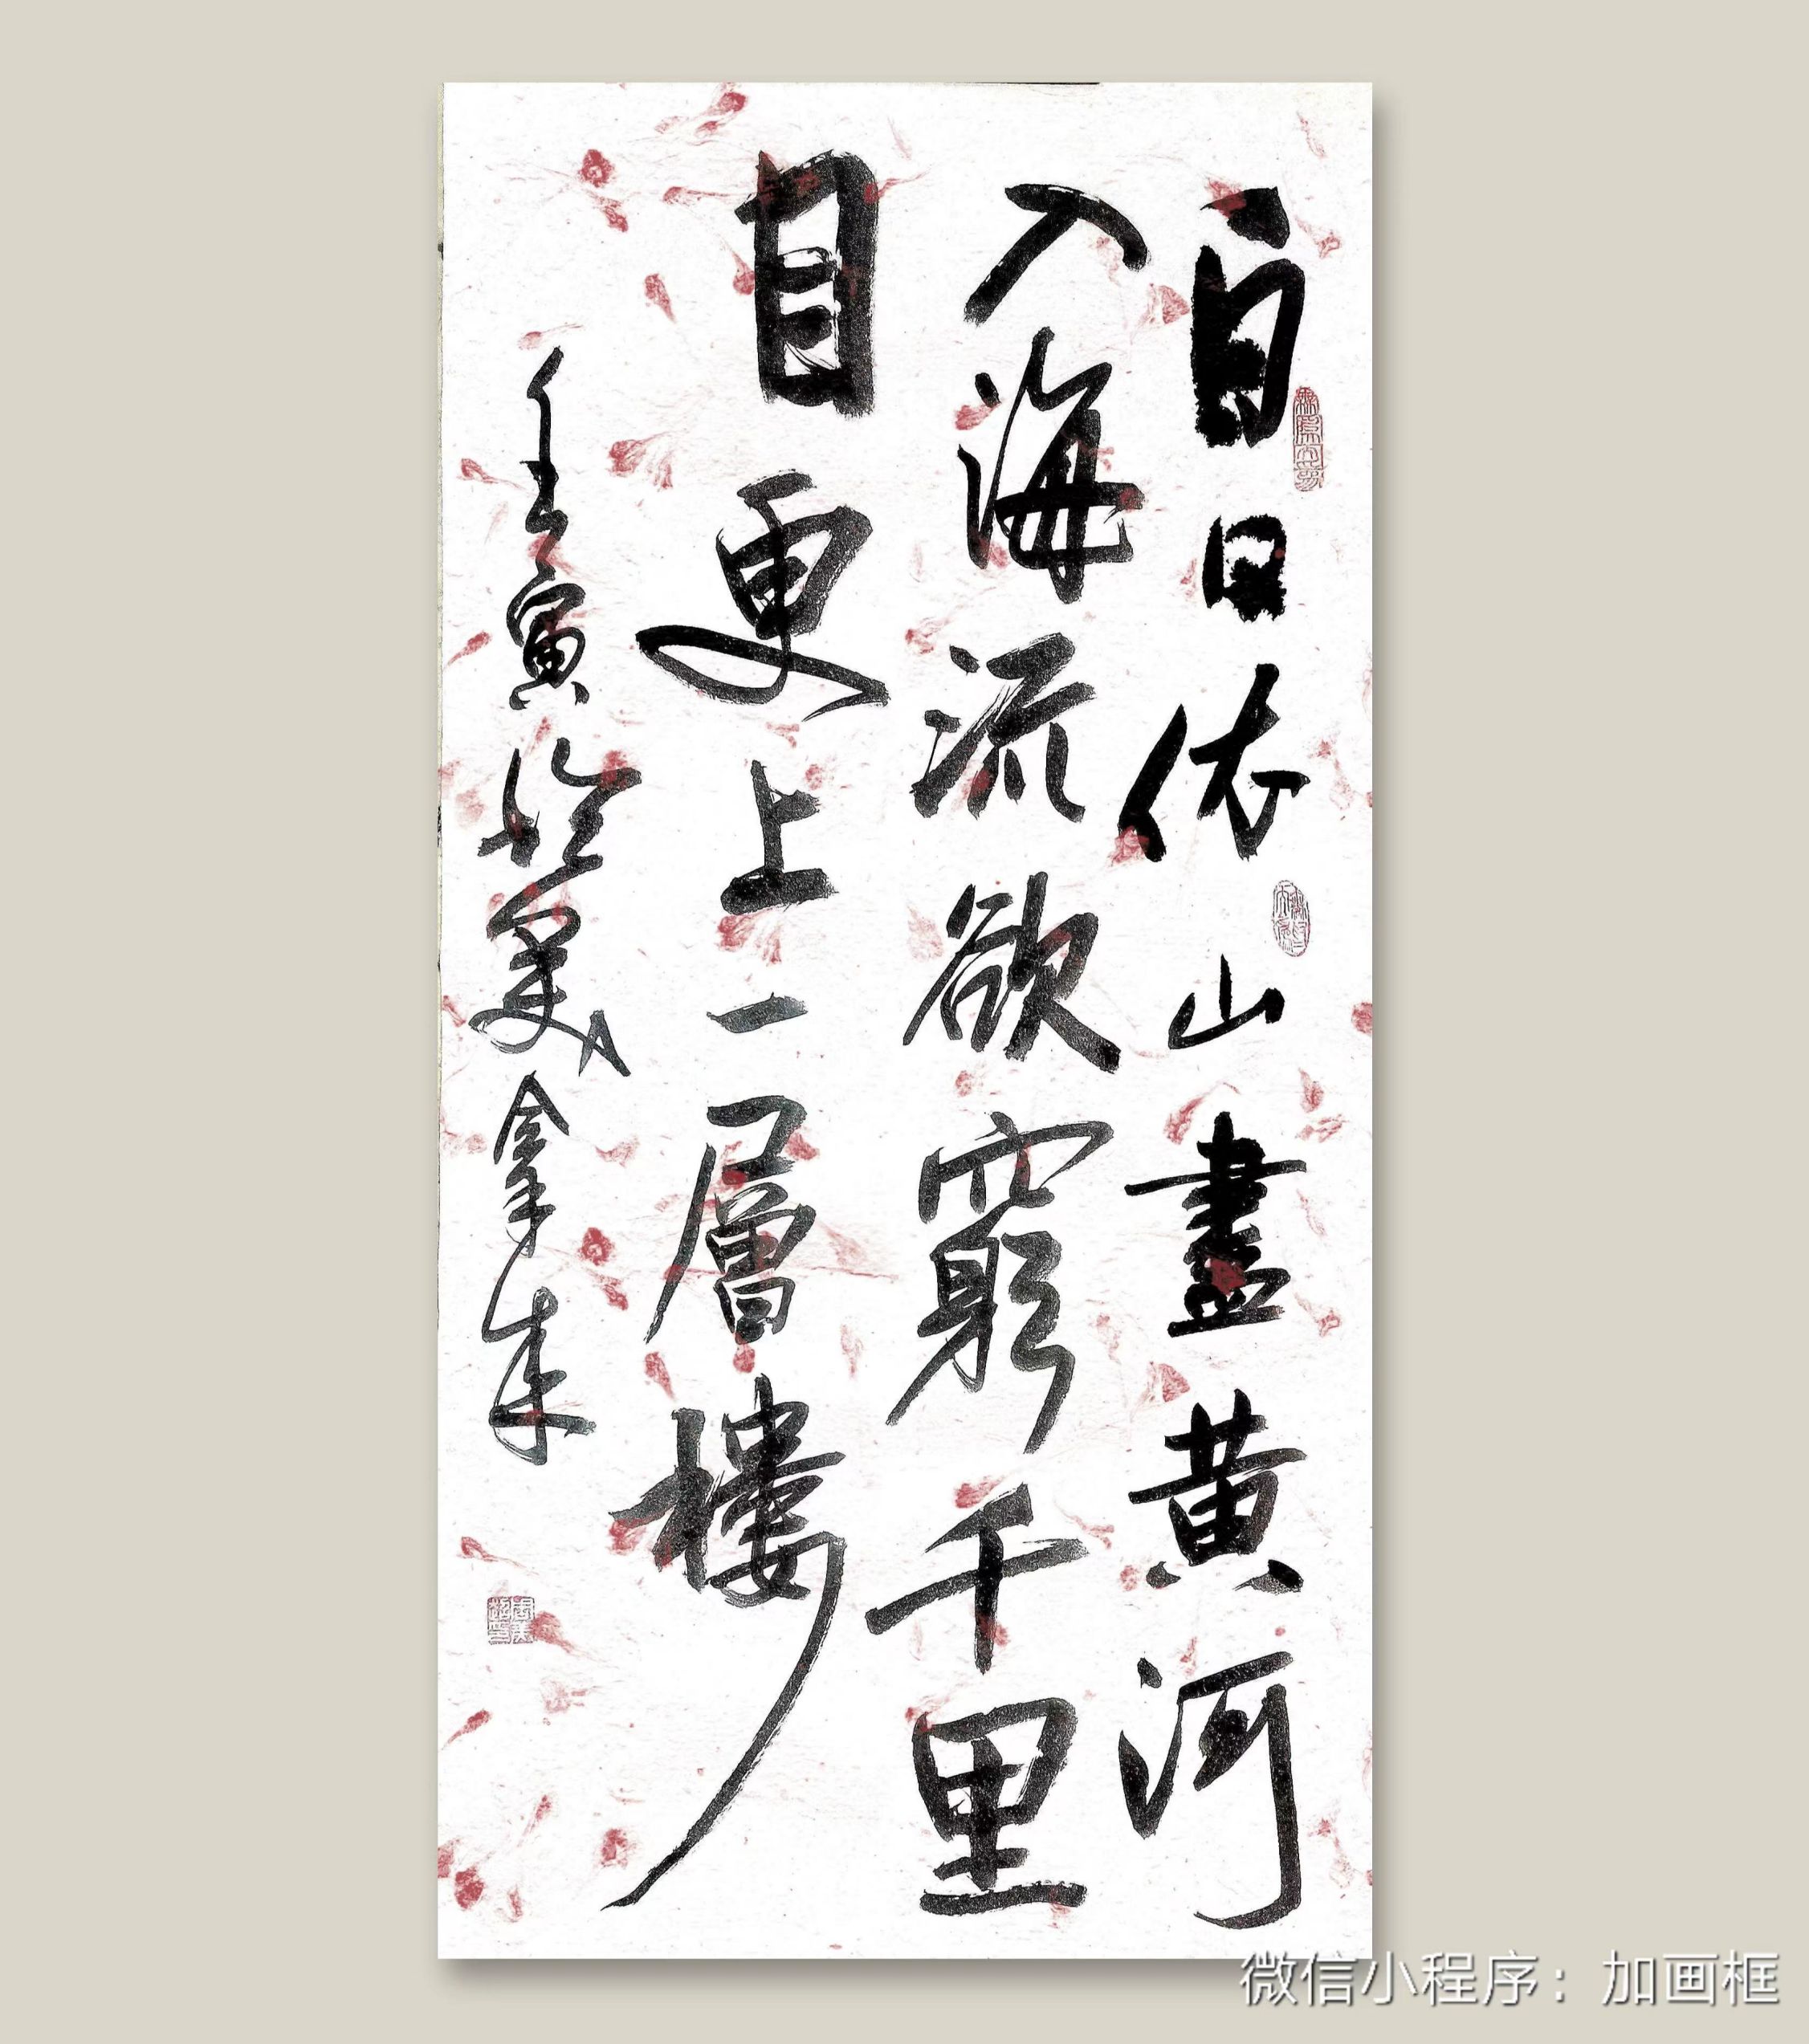 白日依山盡黄河
入海流欲窮千里
目更上一層樓
壬寅
微信小程序：加画框